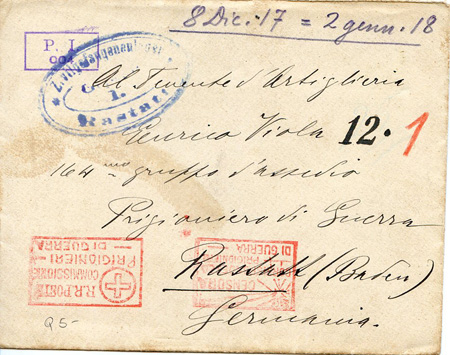 8 Dic. 17 = 2 genn. 18
P. I.
Rastatt
Al Tenente d'Artiglieria
Enrico Viola 12. 1
164mo gruppo d'assedio
Prigioniero di Guerra
R.R. POSTE
COMMISSIONE
PRIGIONIERI
DI GUERRA
CENSURA
PRIGIONIERI
DI GUERRA
Rastatt (Baden)
Germania.
Q5-